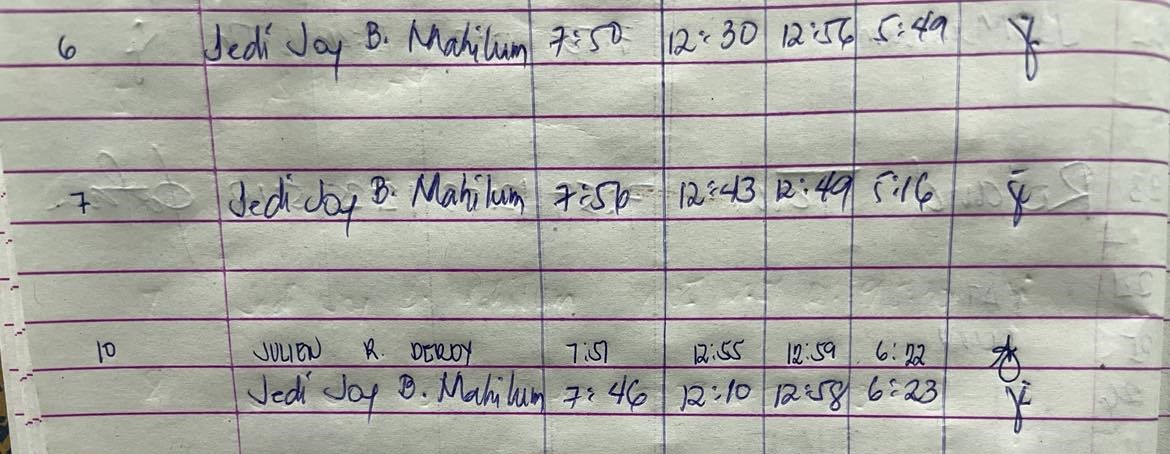 6 Jedi Joy B. Mahilum 7:50 12:30 12:56 5:49
7 Jedi Joy B. Mahilum 7:56 12:43 12:49 5:16
10 JULIEN R. DEROY 7:51 12:55 12:59 6:22
Jedi Joy B. Mahilum 7:46 12:10 12:58 6:23